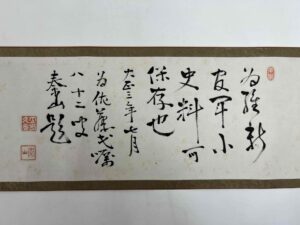 為維新
官軍小
史料可
保存也
大正三年七月
為佐藤氏嘱
八十二叟
秦山題